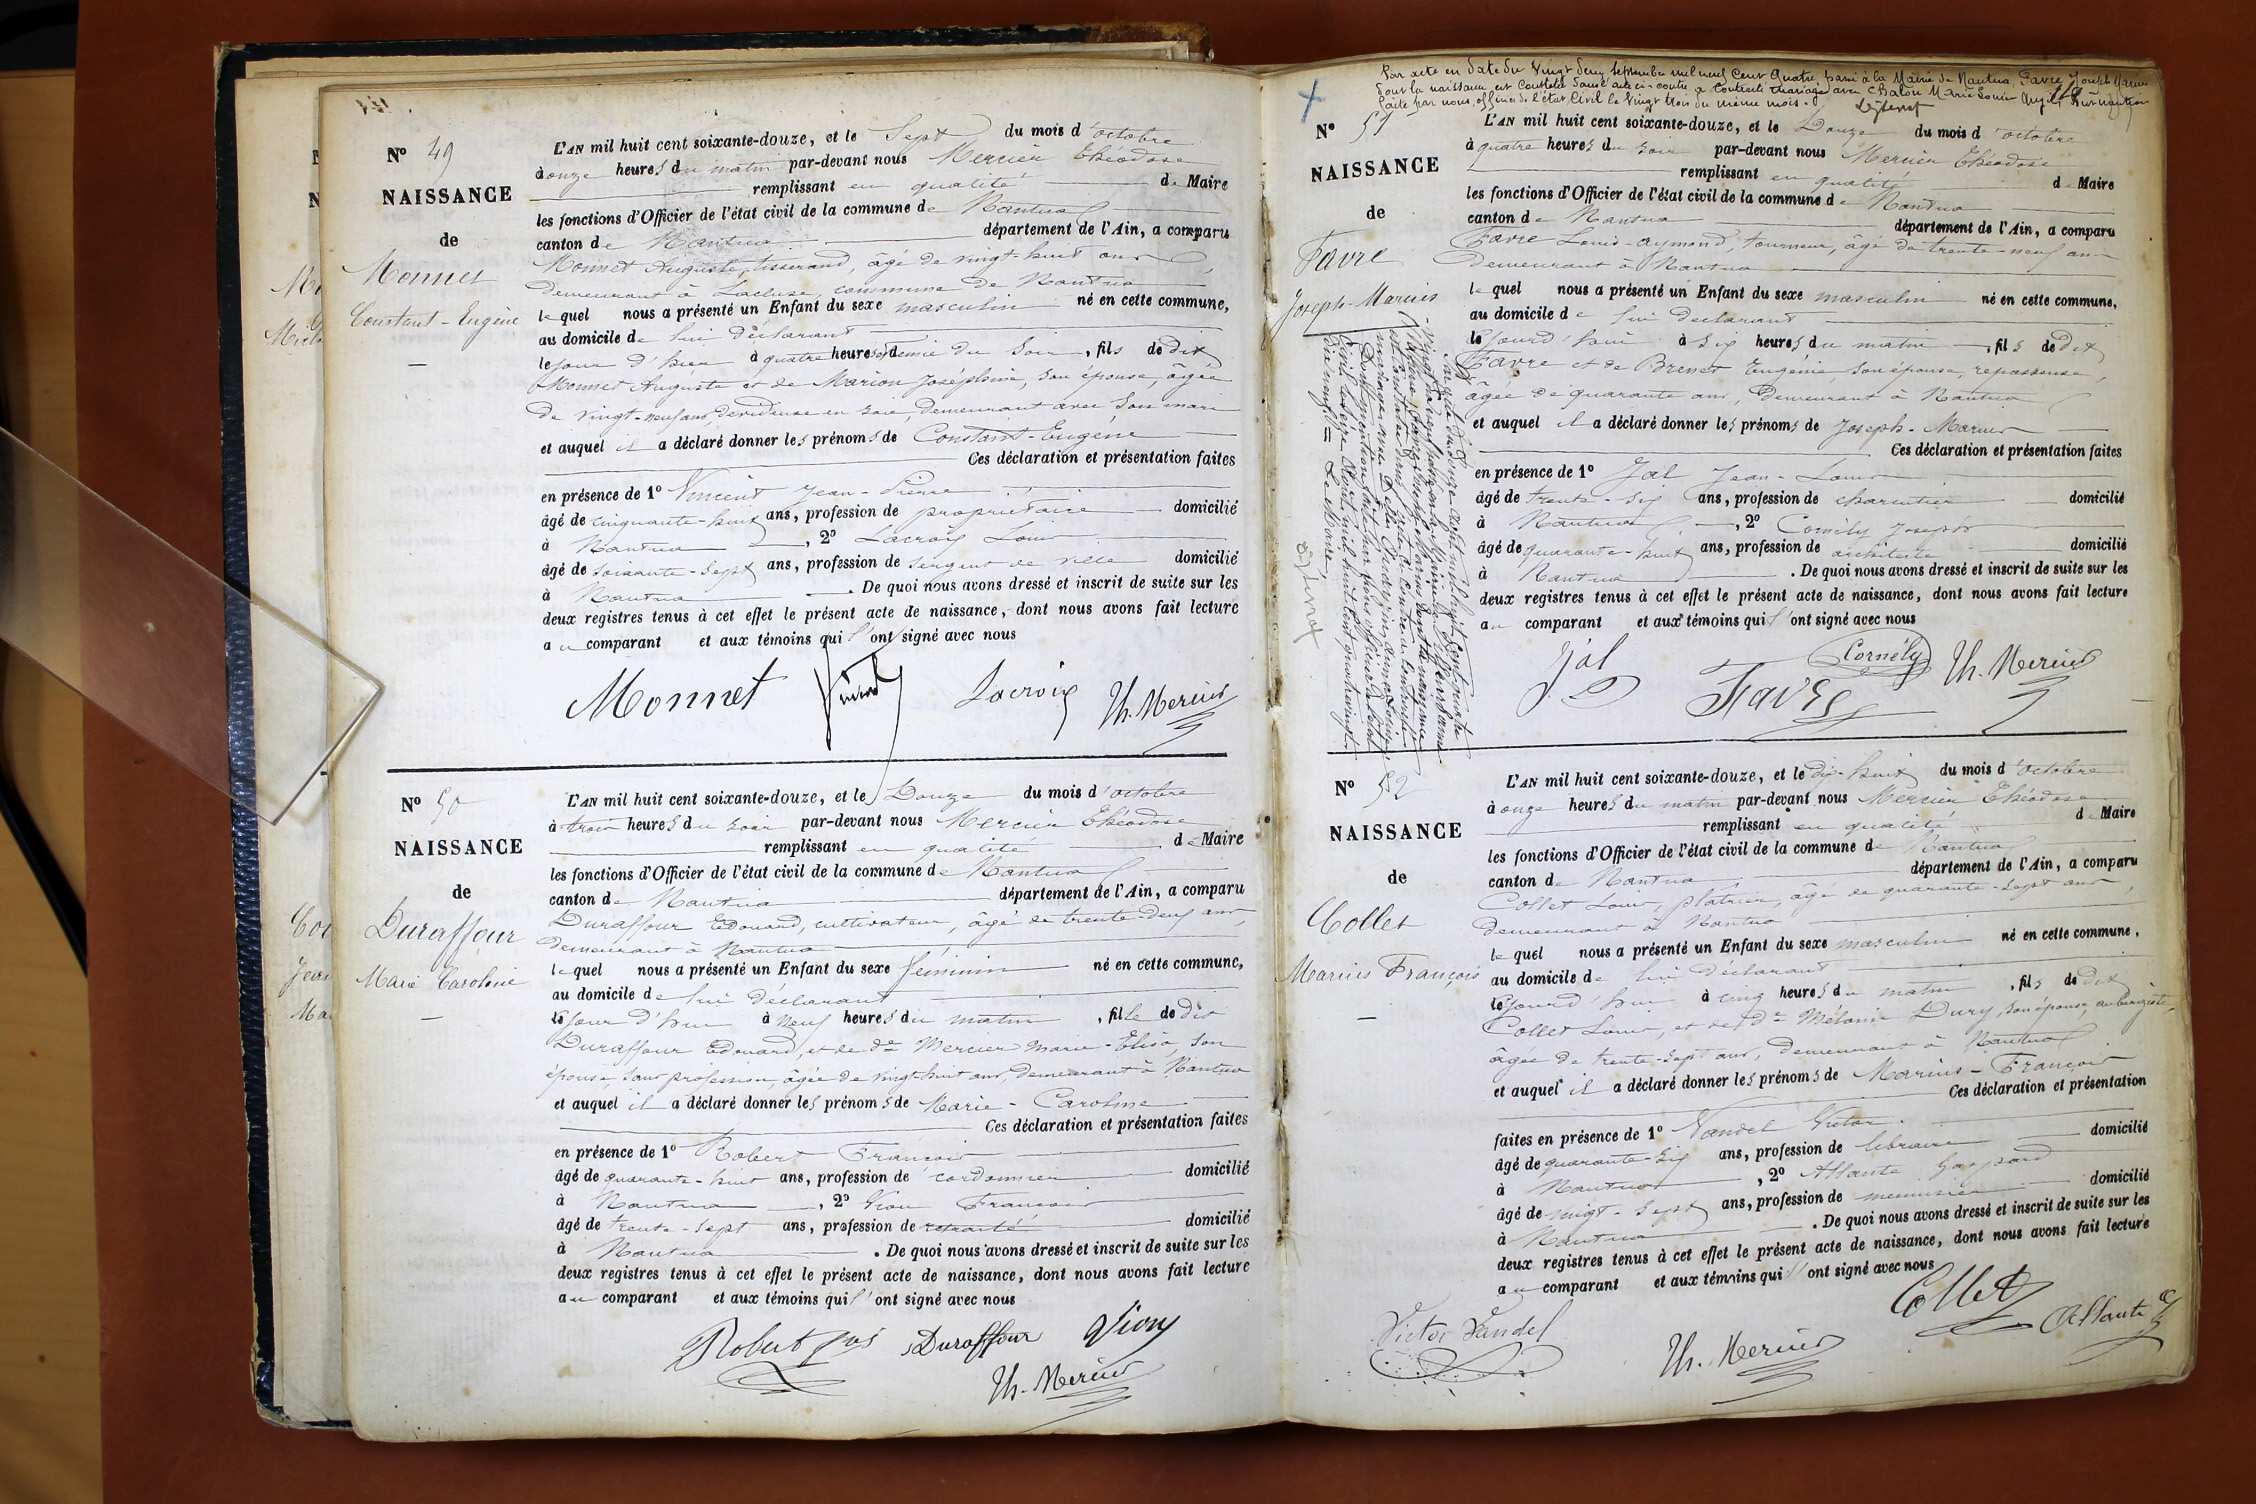 N° 49
NAISSANCE
de
Monnet
Constant-Eugène
L'AN mil huit cent soixante-douze, et le Sept du mois d'octobre
à onze heures du matin par-devant nous Mercier Théodose
remplissant en qualité de Maire
les fonctions d'Officier de l'état civil de la commune de Nantua
canton de Nantua département de l'Ain, a comparu
Monnet Auguste, tisserand, âgé de vingt-huit ans
demeurant à Lacluse, commune de Nantua
lequel nous a présenté un Enfant du sexe masculin né en cette commune,
au domicile de lui déclarant
le jour d'hier à quatre heures et demie du soir, fils de dit
Monnet Auguste et de Marion Joséphine, son épouse, âgée
de vingt-neuf ans, dévideuse en soie, demeurant avec son mari
et auquel il a déclaré donner les prénoms de Constant-Eugène
Ces déclaration et présentation faites
en présence de 1° Vincent Jean-Pierre
âgé de cinquante-huit ans, profession de propriétaire domicilié
à Nantua, 2° Lacroix Louis
âgé de soixante-sept ans, profession de sergent de ville domicilié
à Nantua. De quoi nous avons dressé et inscrit de suite sur les
deux registres tenus à cet effet le présent acte de naissance, dont nous avons fait lecture
au comparant et aux témoins qui l'ont signé avec nous
Monnet Vincent Lacroix Th. Mercier
N° 50
NAISSANCE
de
Duraffour
Marie Caroline
L'AN mil huit cent soixante-douze, et le Douze du mois d'octobre
à trois heures du soir par-devant nous Mercier Théodose
remplissant en qualité de Maire
les fonctions d'Officier de l'état civil de la commune de Nantua
canton de Nantua département de l'Ain, a comparu
Duraffour Edouard, cultivateur, âgé de trente-deux ans,
demeurant à Nantua
lequel nous a présenté un Enfant du sexe féminin né en cette commune,
au domicile de lui déclarant
le jour d'hui à neuf heures du matin, fille de dit
Duraffour Edouard, et de de Mercier Marie-Elisa, son
épouse, sans profession, âgée de vingt huit ans, demeurant à Nantua
et auquel il a déclaré donner les prénoms de Marie-Caroline
Ces déclaration et présentation faites
en présence de 1° Robert François
âgé de quarante-huit ans, profession de cordonnier domicilié
à Nantua, 2° Vion François
âgé de trente-sept ans, profession de retraité domicilié
à Nantua. De quoi nous avons dressé et inscrit de suite sur les
deux registres tenus à cet effet le présent acte de naissance, dont nous avons fait lecture
au comparant et aux témoins qui l'ont signé avec nous
Robert Duraffour Viony
Th. Mercier
Par acte en date du vingt deux septembre mil neuf cent quatre passé à la Mairie de Nantua, Favre Joseph Marius
dont la naissance est constatée dans l'acte ci-contre a contracté mariage avec Chalon Marie Louise
faite par nous, officier de l'état civil le vingt trois du même mois.
N° 51
NAISSANCE
de
Favre
Joseph-Marius
L'AN mil huit cent soixante-douze, et le Douze du mois d'octobre
à quatre heures du soir par-devant nous Mercier Théodose
remplissant en qualité de Maire
les fonctions d'Officier de l'état civil de la commune de Nantua
canton de Nantua département de l'Ain, a comparu
Favre Louis-aymond, tourneur, âgé de trente-neuf ans
demeurant à Nantua
lequel nous a présenté un Enfant du sexe masculin né en cette commune,
au domicile de lui déclarant
le jourd'hui à six heures du matin, fils de dit
Favre et de Brenet Eugénie son épouse, repasseuse,
âgée de quarante ans, demeurant à Nantua
et auquel il a déclaré donner les prénoms de Joseph-Marius
Ces déclaration et présentation faites
en présence de 1° Jal Jean-Louis
âgé de trente-six ans, profession de charcutier domicilié
à Nantua, 2° Cornély Joseph
âgé de quarante-huit ans, profession de architecte domicilié
à Nantua. De quoi nous avons dressé et inscrit de suite sur les
deux registres tenus à cet effet le présent acte de naissance, dont nous avons fait lecture
au comparant et aux témoins qui l'ont signé avec nous
Jal Favre Cornély Th. Mercier
N° 52
NAISSANCE
de
Collet
Marius François
L'AN mil huit cent soixante-douze, et le dix-huit du mois d'octobre
à onze heures du matin par-devant nous Mercier Théodose
remplissant en qualité de Maire
les fonctions d'Officier de l'état civil de la commune de Nantua
canton de Nantua département de l'Ain, a comparu
Collet Louis, plâtrier, âgé de quarante-sept ans,
demeurant à Nantua
lequel nous a présenté un Enfant du sexe masculin né en cette commune,
au domicile de lui déclarant
le jourd'hui à cinq heures du matin, fils de dit
Collet Louis, et de de Mélanie Dury, son épouse, aubergiste,
âgée de trente-sept ans, demeurant à Nantua
et auquel il a déclaré donner les prénoms de Marius-François
Ces déclaration et présentation
faites en présence de 1° Vandel Victor
âgé de quarante-six ans, profession de libraire domicilié
à Nantua, 2° Allante Gaspard
âgé de vingt-sept ans, profession de menuisier domicilié
à Nantua. De quoi nous avons dressé et inscrit de suite sur les
deux registres tenus à cet effet le présent acte de naissance, dont nous avons fait lecture
au comparant et aux témoins qui l'ont signé avec nous
Victor Vandel Th. Mercier Collet Allante